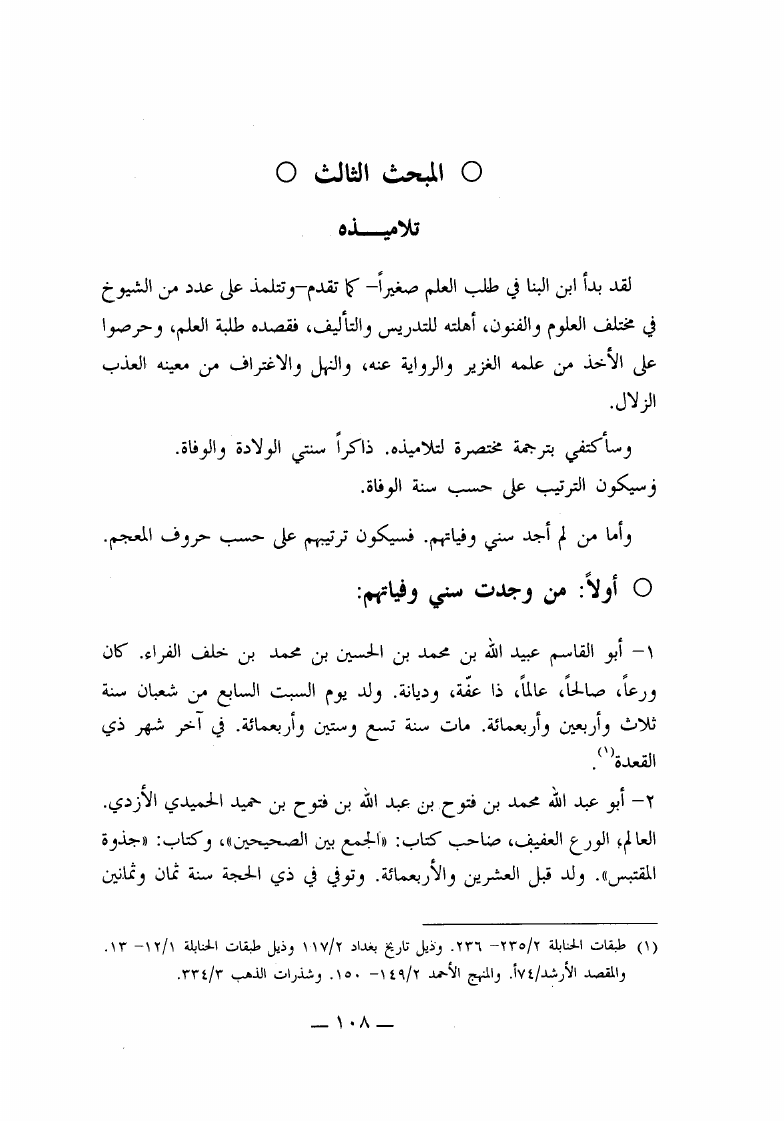 ○ المبحث الثالث ○
تلاميـــذه
لقد بدأ ابن البنا في طلب العلم صغيراً– كما تقدم–وتتلمذ على عدد من الشيوخ
في مختلف العلوم والفنون، أهلته للتدريس والتأليف، فقصده طلبة العلم، وحرصوا
على الأخذ من علمه الغزير والرواية عنه، والنهل والاغتراف من معينه العذب
الزلال.
وسأكتفي بترجمة مختصرة لتلاميذه. ذاكراً سنتي الولادة والوفاة.
وسيكون الترتيب على حسب سنة الوفاة.
وأما من لم أجد سني وفياتهم. فسيكون ترتيبهم على حسب حروف المعجم.
○ أولاً: من وجدت سني وفياتهم:
١– أبو القاسم عبيد الله بن محمد بن الحسين بن محمد بن خلف الفراء. كان
ورعاً، صالحاً، عالماً، ذا عفّة، وديانة. ولد يوم السبت السابع من شعبان سنة
ثلاث وأربعين وأربعمائة. مات سنة تسع وستين وأربعمائة. في آخر شهر ذي
القعدة(١).
٢– أبو عبد الله محمد بن فتوح بن عبد الله بن فتوح بن حميد الحميدي الأزدي.
العالم، الورع العفيف، صاحب كتاب: «الجمع بين الصحيحين»، وكتاب: «جذوة
المقتبس». ولد قبل العشرين والأربعمائة. وتوفي في ذي الحجة سنة ثمان وثمانين
(١) طبقات الحنابلة ٢/٢٣٥– ٢٣٦. وذيل تاريخ بغداد ٢/١١٧ وذيل طبقات الحنابلة ١/١٢– ١٣.
والمقصد الأرشد/٧٤أ. والمنهج الأحمد ٢/١٤٩– ١٥٠. وشذرات الذهب ٣/٣٣٤.
– ١٠٨ –